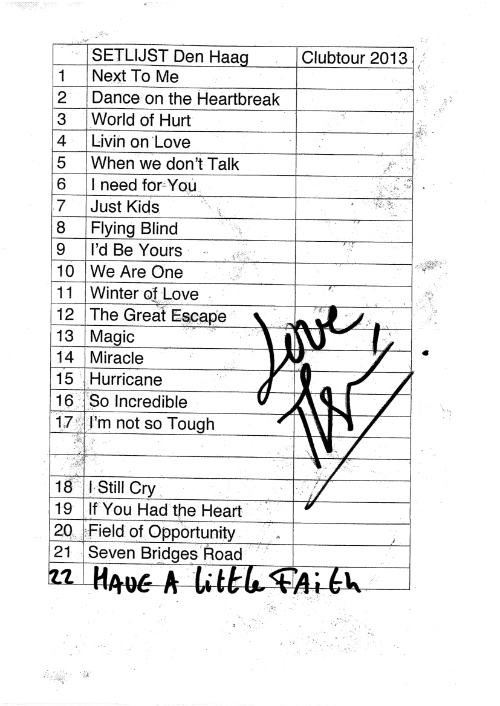 SETLIJST Den Haag Clubtour 2013
1 Next To Me
2 Dance on the Heartbreak
3 World of Hurt
4 Livin on Love
5 When we don't Talk
6 I need for You
7 Just Kids
8 Flying Blind
9 I'd Be Yours
10 We Are One
11 Winter of Love
12 The Great Escape
13 Magic
14 Miracle
15 Hurricane
16 So Incredible
17 I'm not so Tough
Love,
18 I Still Cry
19 If You Had the Heart
20 Field of Opportunity
21 Seven Bridges Road
22 HAVE A little FAith